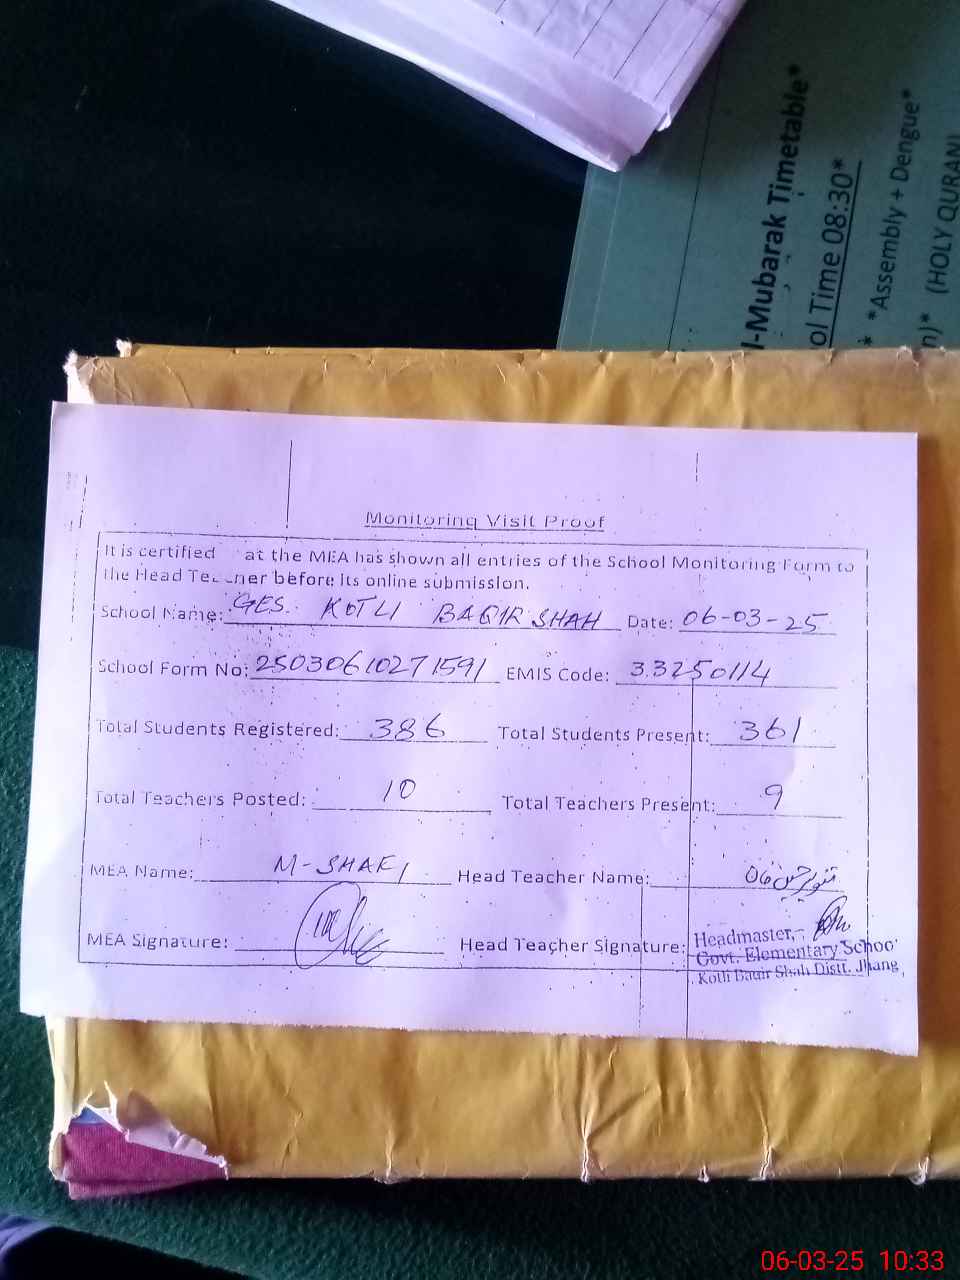 -Mubarak Timetable*
ol Time 08:30*
* *Assembly + Dengue*
n)* (HOLY QURAN)
Monitoring Visit Proof
It is certified at the MEA has shown all entries of the School Monitoring Form to
the Head Teacher before its online submission.
School Name: GES. KOTLI BAQIR SHAH Date: 06-03-25
School Form No: 25030610271591 EMIS Code: 33250114
Total Students Registered: 386 Total Students Present: 361
Total Teachers Posted: 10 Total Teachers Present: 9
MEA Name: M-SHAFI Head Teacher Name:
MEA Signature: Head Teacher Signature: Headmaster,
Govt. Elementary School
Kotli Baqir Shah Distt. Jhang
06-03-25 10:33